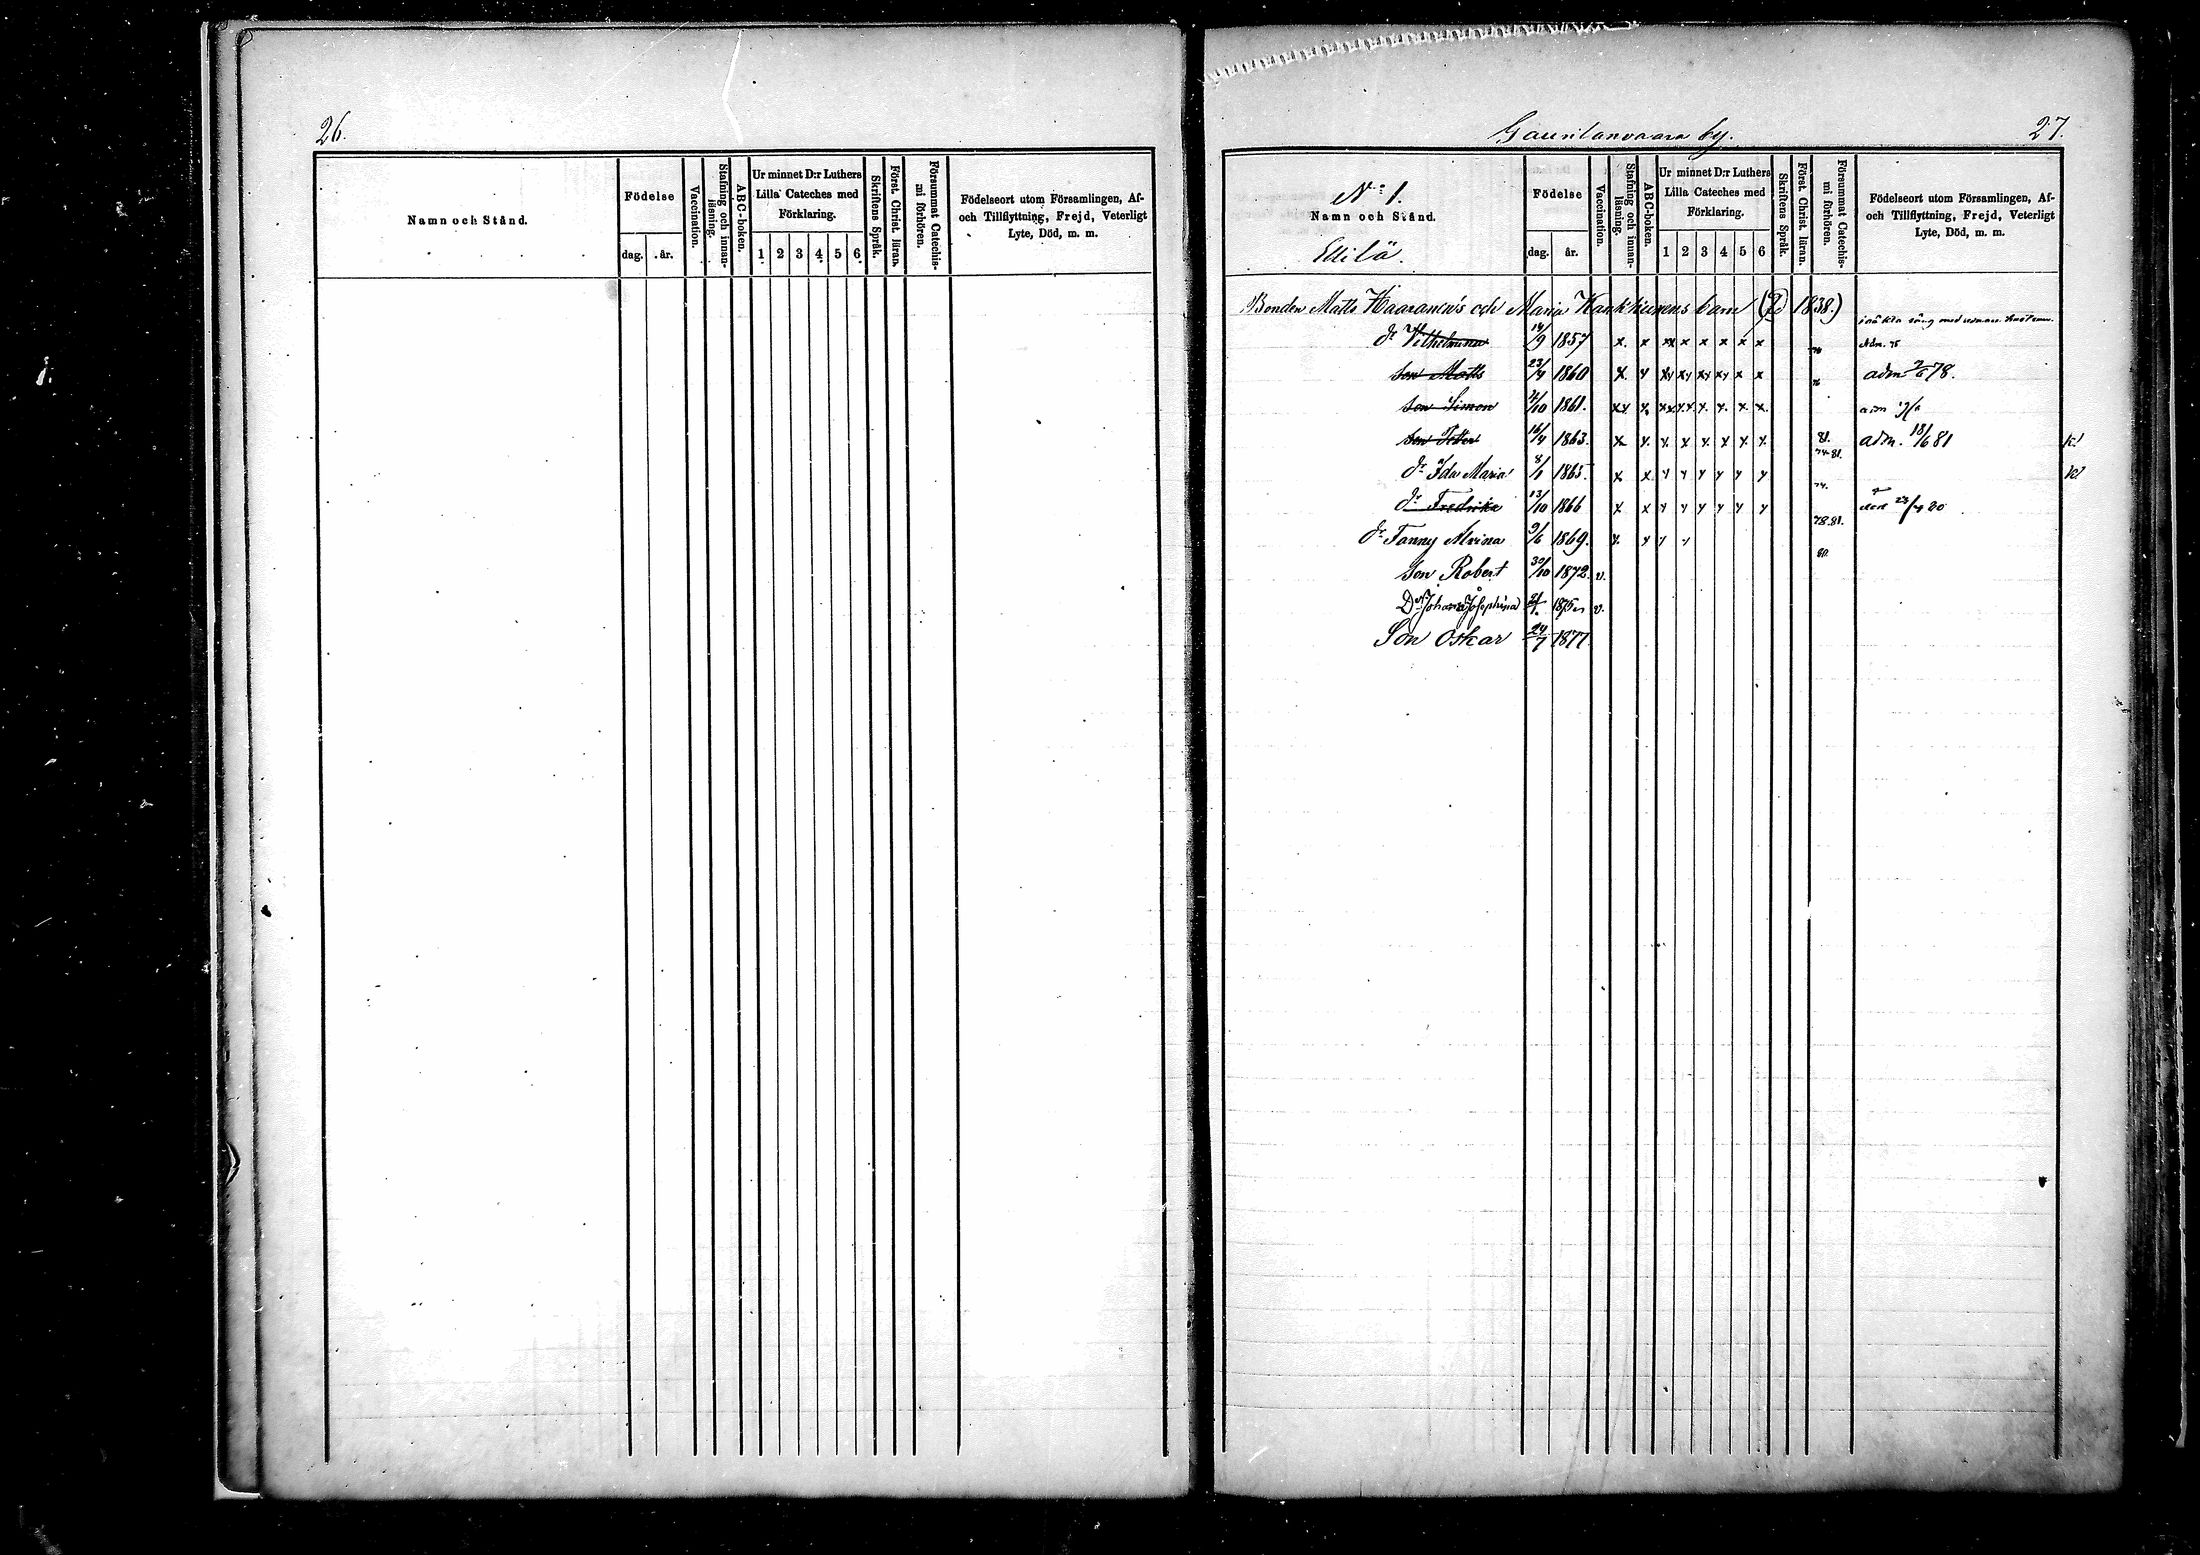 26.
Namn och Stånd.
Födelse
dag. år.
Vaccination.
Stafning och innan-
läsning.
ABC-boken.
Ur minnet D:r Luthers
Lilla Cateches med
Förklaring.
1 2 3 4 5 6
Skriftens Språk.
Först. Christ. läran.
Försummat Catechis-
mi förhören.
Födelseort utom Församlingen, Af-
och Tillflyttning, Frejd, Veterligt
Lyte, Död, m. m.
by. 27.
N:o 1.
Namn och Stånd.
Edilä.
Födelse
dag. år.
Vaccination.
Stafning och innan-
läsning.
ABC-boken.
Ur minnet D:r Luthers
Lilla Cateches med
Förklaring.
1 2 3 4 5 6
Skriftens Språk.
Först. Christ. läran.
Försummat Catechis-
mi förhören.
Födelseort utom Församlingen, Af-
och Tillflyttning, Frejd, Veterligt
Lyte, Död, m. m.
Bonden Matts Haaranen's och Maria barn 1838.)
dr Vilhelmina 14/9 1857 x. x xx x x x x x Adm. 75
son Matts 23/4 1860 x. y xy xy xy xy x x adm 78.
son Simon /10 1861. xy x x x x.
son Petter 16/4 1863. x x. x. x x x x x. 81. adm. 18/6 81 k!
74-81.
dr Ida Maria 8/1 1865 x x y y y y y y k!
74.
dr Fredrika 13/10 1866 x x y y y y y y död 80
78.81.
dr Fanny Alvina 9/6 1869. x. y y y
80.
son Robert 30/10 1872. v.
Dr Johanna Josephina 1875 v.
Son Oskar 24/7 1877